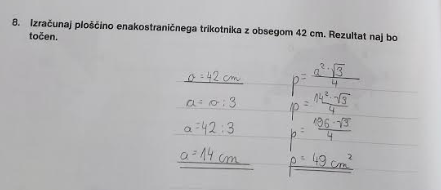 8. Izračunaj ploščino enakostraničnega trikotnika z obsegom 42 cm. Rezultat naj bo
točen.
o = 42 cm
a = o : 3
a = 42 : 3
a = 14 cm
p = a²·√3/4
p = 14²·√3/4
p = 196·√3/4
p = 49 cm²